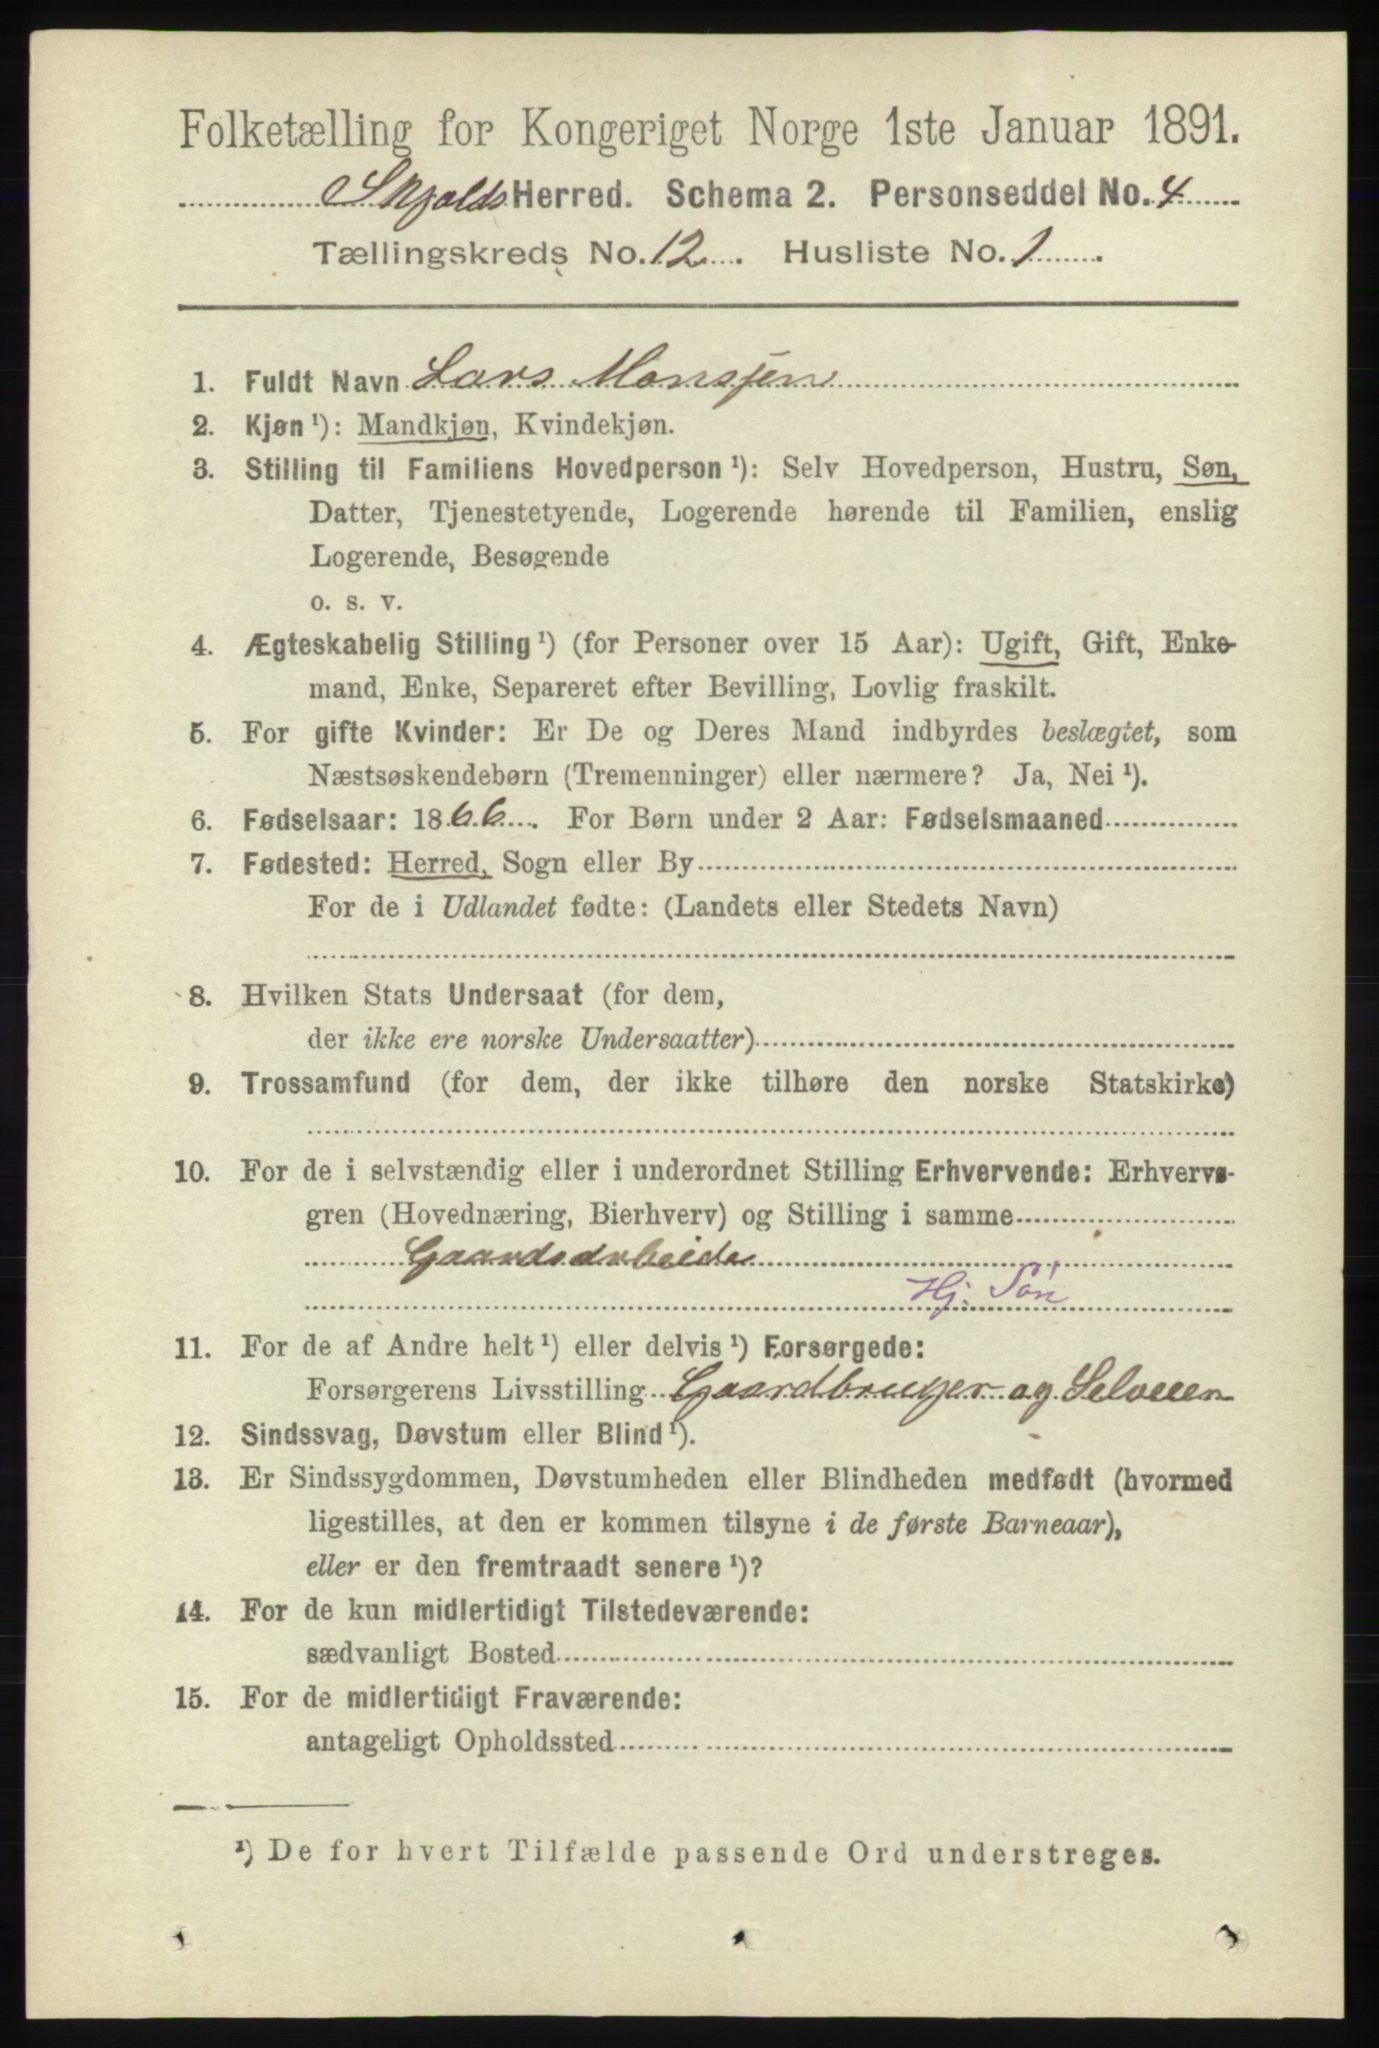 Folketælling for Kongeriget Norge 1ste Januar 1891.
Skjolds Herred. Schema 2. Personseddel No. 4
Tællingskreds No. 12. Husliste No. 1.
1. Fuldt Navn Lars Monsen
2. Kjøn ¹): Mandkjøn, Kvindekjøn.
3. Stilling til Familiens Hovedperson ¹): Selv Hovedperson, Hustru, Søn,
Datter, Tjenestetyende, Logerende hørende til Familien, enslig
Logerende, Besøgende
o. s. v.
4. Ægteskabelig Stilling ¹) (for Personer over 15 Aar): Ugift, Gift, Enke-
mand, Enke, Separeret efter Bevilling, Lovlig fraskilt.
5. For gifte Kvinder: Er De og Deres Mand indbyrdes beslægtet, som
Næstsøskendebørn (Tremenninger) eller nærmere? Ja, Nei ¹).
6. Fødselsaar: 1866. For Børn under 2 Aar: Fødselsmaaned
7. Fødested: Herred, Sogn eller By
For de i Udlandet fødte: (Landets eller Stedets Navn)
8. Hvilken Stats Undersaat (for dem,
der ikke ere norske Undersaatter)
9. Trossamfund (for dem, der ikke tilhøre den norske Statskirke)
10. For de i selvstændig eller i underordnet Stilling Erhvervende: Erhvervs-
gren (Hovednæring, Bierhverv) og Stilling i samme
Gaardsarbeide
Hj. Søn
11. For de af Andre helt ¹) eller delvis ¹) Forsørgede:
Forsørgerens Livsstilling Gaardbruger og Selveier
12. Sindssvag, Døvstum eller Blind ¹).
13. Er Sindssygdommen, Døvstumheden eller Blindheden medfødt (hvormed
ligestilles, at den er kommen tilsyne i de første Barneaar),
eller er den fremtraadt senere ¹)?
14. For de kun midlertidigt Tilstedeværende:
sædvanligt Bosted
15. For de midlertidigt Fraværende:
antageligt Opholdssted
¹) De for hvert Tilfælde passende Ord understreges.